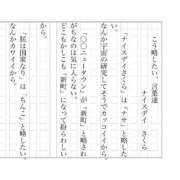 こう略したい、言葉達
ナイスデイ さくら
「ナイスデイさくら」は「ナサ」と略した
い。
なんか宇宙の研究してそうでカッコイイから。
「〇〇ニュータウン」が「新町」と略され
がちなのは気に入らない。
どこもかしこも「新町」になって紛らわしい
から。
「朕は国家なり」は「ちんこ」と略したい。
なんかカワイイから。